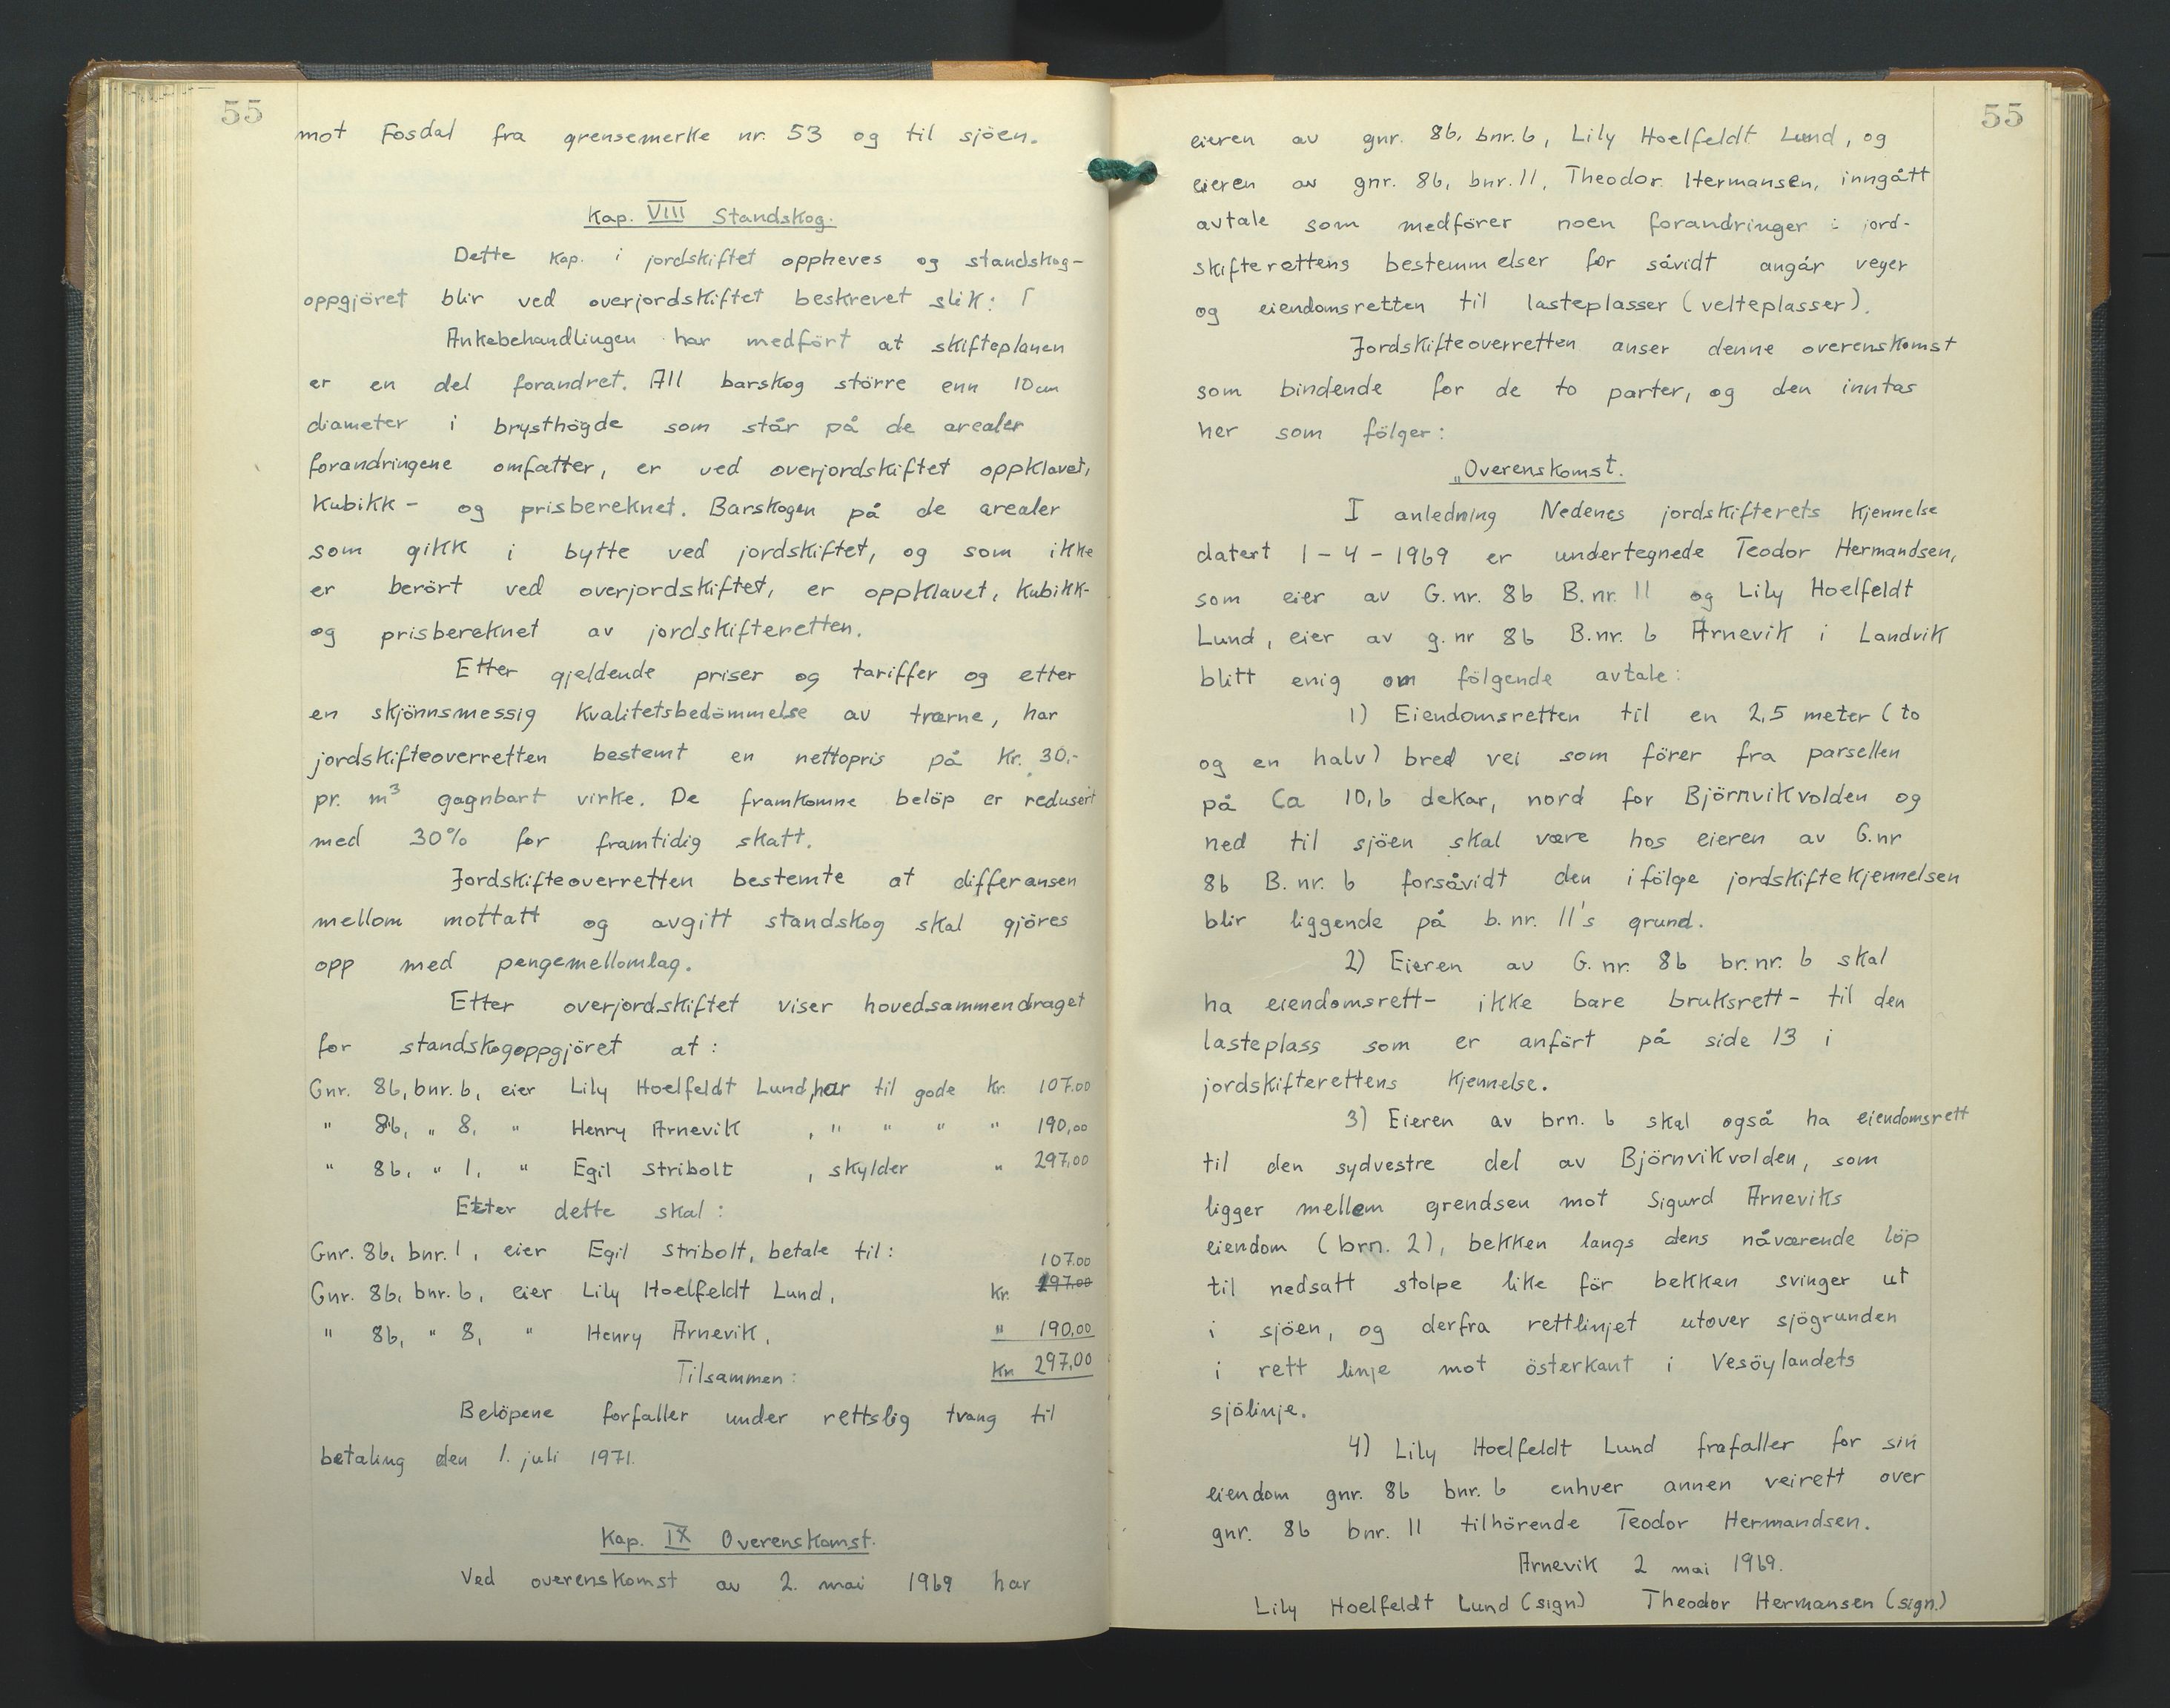 55
mot Fosdal fra grensemerke nr. 53 og til sjöen.
Kap. VIII Standskog.
Dette Kap. i jordskiftet oppheves og standskog-
oppgjöret blir ved overjordskiftet beskrevet slik:
Ankebehandlingen har medfört at skifteplanen
er en del forandret. All barskog större enn 10 cm
diameter i brysthögde som står på de arealer
forandringene omfatter, er ved overjordskiftet oppklavet,
Kubikk- og prisbereknet. Barskogen på de arealer
som gikk i bytte ved jordskiftet, og som ikke
er berört ved overjordskiftet, er oppklavet, Kubikk-
og prisbereknet av jordskifteretten.
Etter gjeldende priser og tariffer og etter
en skjönnsmessig Kvalitetsbedömmelse av trærne, har
jordskifteoverretten bestemt en nettopris på Kr. 30.-
pr. m³ gagnbart virke. De framkomne belöp er redusert
med 30% for framtidig skatt.
Jordskifteoverretten bestemte at differansen
mellom mottatt og avgitt standskog skal gjöres
opp med pengemellomlag.
Etter overjordskiftet viser hovedsammendraget
for standskogoppgjöret at:
Gnr. 86, bnr. 6, eier Lily Hoelfeldt Lund, har til gode Kr. 107.00
" 86, " 8, " Henry Arnevik , " " " " 190,00
" 86, " 1, " Egil Stribolt , skylder " 297,00
Etter dette skal:
Gnr. 86, bnr. 1, eier Egil Stribolt, betale til:
107.00
Gnr. 86, bnr. 6, eier Lily Hoelfeldt Lund, Kr. 297.00
" 86, " 8, " Henry Arnevik, " 190,00
Tilsammen: Kr. 297,00
Belöpene forfaller under rettslig tvang til
betaling den 1. juli 1971.
Kap. IX Overenskomst.
Ved overenskomst av 2. mai 1969 har
55
eieren av gnr. 86, bnr. 6, Lily Hoelfeldt Lund, og
eieren av gnr. 86, bnr. 11, Theodor Hermansen, inngått
avtale som medförer noen forandringer i jord-
skifterettens bestemmelser for såvidt angår veger
og eiendomsretten til lasteplasser (velteplasser).
Jordskifteoverretten anser denne overenskomst
som bindende for de to parter, og den inntas
her som fölger:
„Overenskomst.
I anledning Nedenes jordskifterets Kjennelse
datert 1-4-1969 er undertegnede Teodor Hermandsen,
som eier av G.nr. 86 B.nr. 11 og Lily Hoelfeldt
Lund, eier av g.nr 86 B.nr. 6 Arnevik i Landvik
blitt enig om fölgende avtale:
1) Eiendomsretten til en 2,5 meter (to
og en halv) bred vei som förer fra parsellen
på Ca 10,6 dekar, nord for Björnvikvolden og
ned til sjöen skal være hos eieren av G.nr
86 B.nr. 6 forsåvidt den ifölge jordskiftekjennelsen
blir liggende på b.nr. 11's grund.
2) Eieren av G.nr. 86 br.nr. 6 skal
ha eiendomsrett- ikke bare bruksrett- til den
lasteplass som er anfört på side 13 i
jordskifterettens Kjennelse.
3) Eieren av brn. 6 skal også ha eiendomsrett
til den sydvestre del av Björnvikvolden, som
ligger mellem grendsen mot Sigurd Arneviks
eiendom (brn. 2), bekken langs dens nåværende löp
til nedsatt stolpe like för bekken svinger ut
i sjöen, og derfra rettlinjet utover sjögrunden
i rett linje mot österkant i Vesöylandets
sjölinje.
4) Lily Hoelfeldt Lund frafaller for sin
eiendom gnr. 86 bnr. 6 enhver annen veirett over
gnr. 86 bnr. 11 tilhörende Teodor Hermandsen.
Arnevik 2 mai 1969.
Lily Hoelfeldt Lund (sign) Theodor Hermansen (sign.)